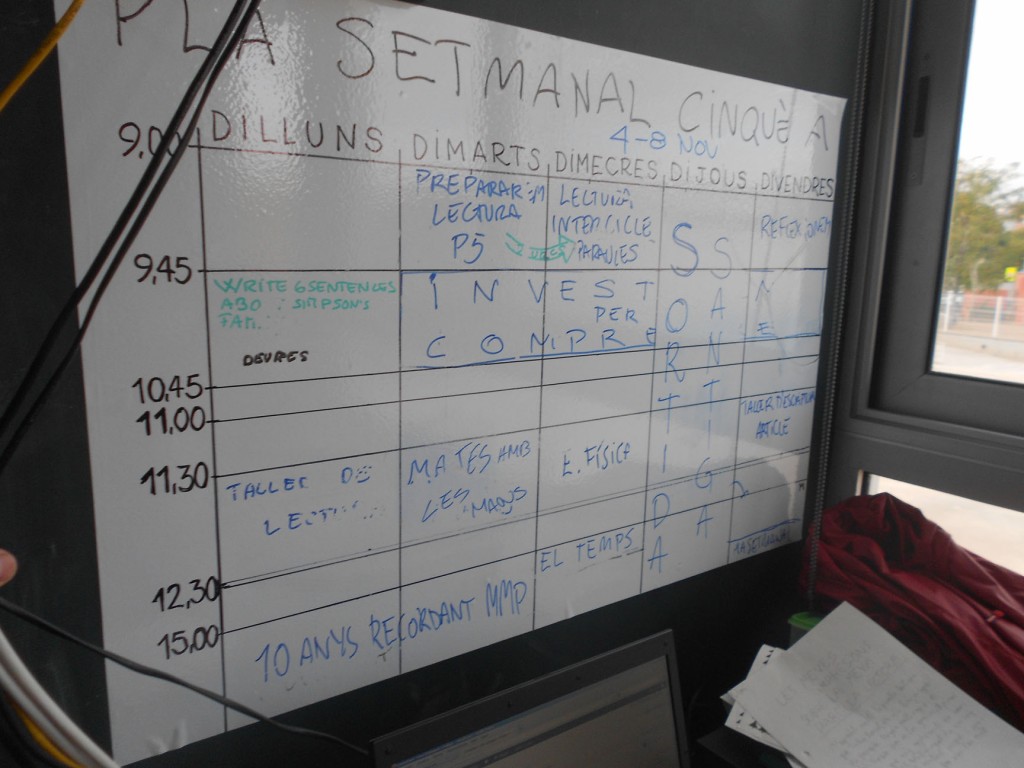 PLA SETMANAL CINQUÈ A
4-8 NOV
DILLUNS DIMARTS DIMECRES DIJOUS DIVENDRES
9,00
PREPARAR
LECTURA
P5
LECTURA
INTERCICLE
PARAULES
9,45
WRITE 6 SENTENCES
SIMPSON'S
FAM.
DEURES
INVEST
PER
COMPRE
SORTIDA
SANT
10,45
11,00
11,30
TALLER DE
MATES AMB
LES MANS
E. FÍSICA
TALLER D'ESCRIPTURA
ARTICLE
12,30
15,00
10 ANYS RECORDANT MMP
EL TEMPS